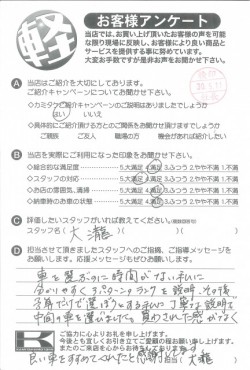 軽
お客様アンケート
当店では、お買い上げ頂いたお客様の声を可能
な限り現場に反映し、お客様により良い商品と
サービスを提供する事に努めています。
大変お手数ですが是非お声をお聞かせ下さい。
A 当店はご紹介を大切にしております。
ご紹介キャンペーンについてお聞かせ下さい。
◇カミタケご紹介キャンペーンのご説明はありましたでしょうか
はい いいえ
◇具体的にご紹介頂ける方とのご関係をお聞かせ頂けますでしょうか
ご親族 ご友人 職場の方 機会があれば紹介したい
B 当店を実際にご利用になった印象をお聞かせ下さい。
◇総合的な満足度 5.大満足 4.満足 3.ふつう 2.やや不満 1.不満
◇スタッフの対応 5.大満足 4.満足 3.ふつう 2.やや不満 1.不満
◇お店の雰囲気、清掃 5.大満足 4.満足 3.ふつう 2.やや不満 1.不満
◇納車時のお車の状態 5.大満足 4.満足 3.ふつう 2.やや不満 1.不満
C 評価したいスタッフがいれば教えてください。
スタッフ名( 大瀧 )
D 担当させて頂きましたスタッフへのご指摘、ご指導メッセージを
お願いします。応援メッセージもぜひお聞かせ下さい。
車を選ぶのに時間がない私に
分かりやすく3パターンランクを説明、その後
予算だけで選ぼうとする私に丁寧な説明で
中間の車を選びまけたも 責められた感がなく
ご協力に心よりお礼を申し上げます。
今後とも宜しくお引き立てご愛顧の程お願い申し上げます。
またのご来店を心からお待ちしております。
良い車をすすめてくれたと感謝 担当 大瀧